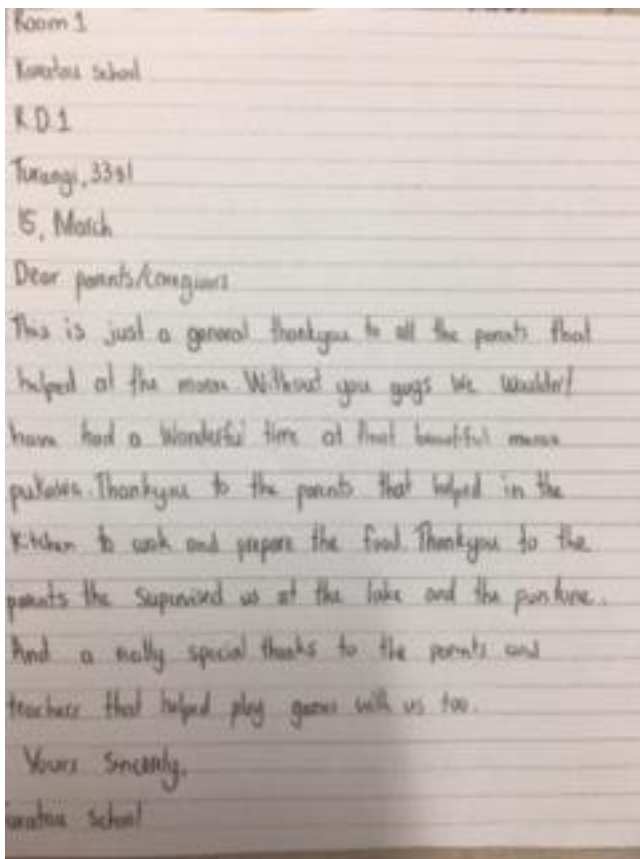 Room 1
school
R.D.1
Turangi, 3381
15, March
Dear parents/caregivers
This is just a general thankyou to all the parents that
helped at the marae Without you guys We Wouldn't
have had a Wonderful time at that beautiful marae
Thankyou to the parents that helped in the
Kitchen to cook and prepare the food. Thankyou to the
parents the Supervised us at the lake and the
And a really special thanks to the parents and
teachers that helped play games with us too.
Yours Sincerely,
school